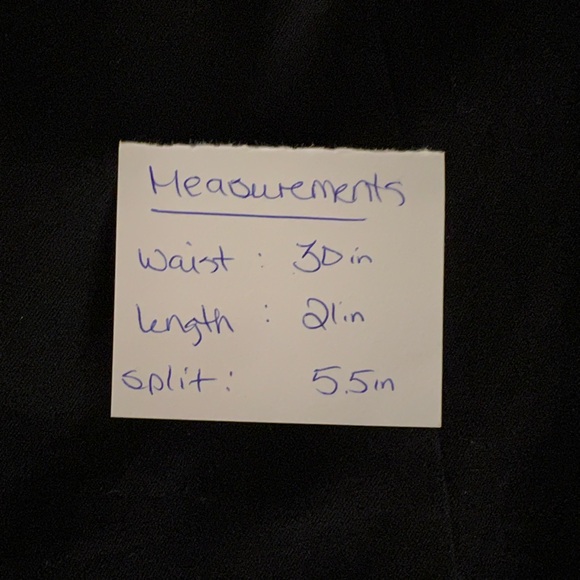 Measurements
waist : 30in
length : 21in
split: 5.5in